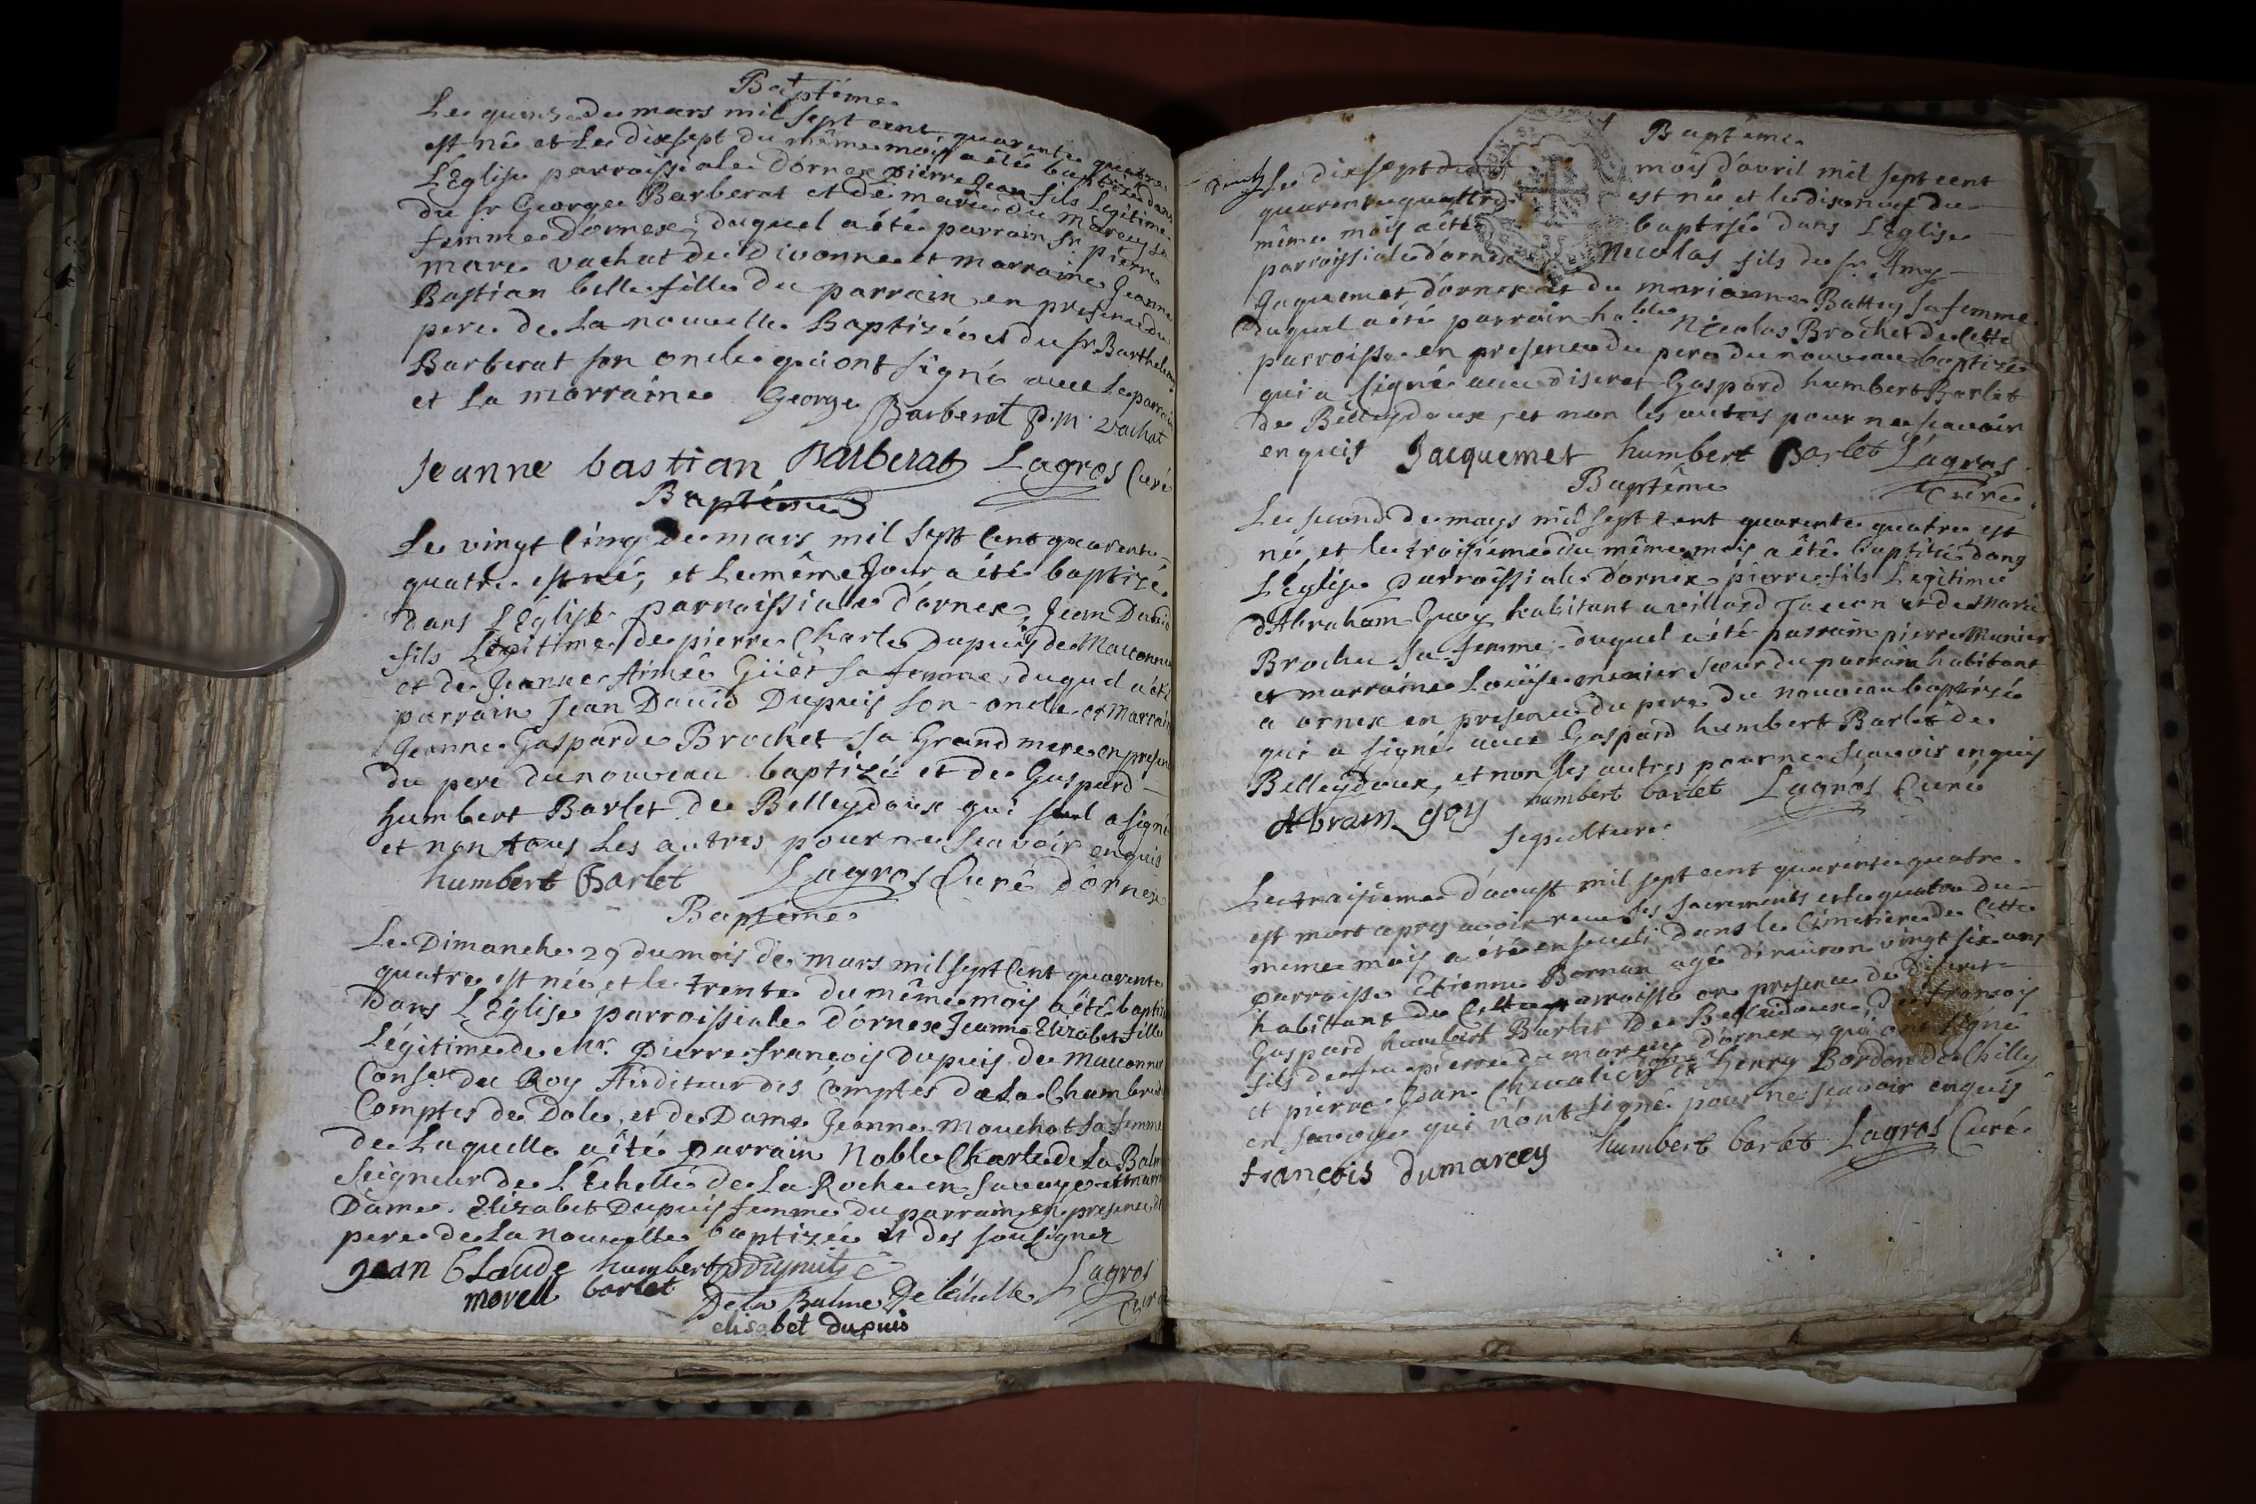 Baptême
Le quinze de mars mil sept cent quarente quatre
est né et le dixsept du même mois a été baptizé dans
L'Eglise parroissiale d'ornex pierre Jean fils Legitime
du sr George Barberat et de marie du marcey sa
femme d'ornex, duquel a été parrain sr pierre
marc vachat de Divonne et marraine Jeanne
Bastian belle fille du parrain en presence du
pere de La nouvelle Baptizée et du sr Barthelemi
Barberat son oncle qui ont signé avec Le parrain
et La marraine George Barberat P. M. Vachat
Jeanne bastian Barberat Lagros Curé
Baptême
Le vingt Cinq de mars mil sept Cent quarente
quatre est né, et Le même Jour a été baptizé
dans L'Eglise parroissiale d'ornex, Jean David
fils Légitime de pierre Charle Dupuis de Maconnex
et de Jeanne Aimée Güet sa femme, duquel a été
parrain Jean David Dupuis son oncle et Marraine
Jeanne Gasparde Brochet sa Grand mere en presence
du pere du nouveau baptizé et de Gaspard
humbert Barlet de Belleydoux qui seul a signé
et non tous Les autres pour ne scavoir enquis
humbert Barlet Lagros Curé d'ornex
Baptême
Le Dimanche 29 du mois de mars mil sept Cent quarente
quatre est née, et le trente du même mois a été baptizée
dans L'Eglise parroissiale d'ornex Jeanne Elizabet fille
Légitime de mr. Pierre francois Dupuis de Maconnex
Conser du Roy Auditeur des Comptes de La Chambre des
Comptes de Dole, et de Dame Jeanne Mouchot sa femme
de Laquelle a été parrain Noble Charle de La Balme
Seigneur de L'Echelle de La Roche en Savoye et marraine
Dame Elizabet Dupuis femme du parrain en presence du
pere de La nouvelle baptizée et des sousignez
Jean Claude humbert
morell barlet De la Balme De léchelle Lagros
elisabet dupuis Curé
Baptême
Le dixsept du mois d'avril mil sept cent
quarente quattre est né et le dixneuf du
même mois a été baptisé dans L'Eglise
parroissiale d'ornex Nicolas fils de sr Amy
Jaquemet d'ornex et de marianne Battey sa femme
duquel a été parrain hable Nicolas Brochet de Cette
parroisse en presence du pere du nouveau baptizé
qui a signé avec discret Gaspard humbert Barlet
de Belleydoux, et non les autres pour ne scavoir
enquis Jacquemet humbert Barlet Lagros
Curé
Baptême
Le second de mays mil sept Cent quarente quatre est
né, et le troisiéme du même mois a été baptizé dans
L'Eglise parroissiale d'ornex pierre fils Legitime
d'Abraham Goy habitant a villard Taccon et de Marie
Brochu sa femme, duquel a été parrain pierre Munier
et marraine Loüise menier soeur du parrain habitant
a ornex en presence du pere du nouveau baptizé
qui a signé avec Gaspard humbert Barlet de
Belleydoux, et non les autres pour ne scavoir enquis
Abram goy humbert barlet Lagros Curé
sepulture
Le troisieme d'aoust mil sept cent quarente quatre
est mort apres avoir receu les sacrements et le quatre du
meme mois a été enseveli dans le Cimetiere de Cette
parroisse Etienne Bornan agé d'environ vingt six ans
habittant de Cette parroisse en presence de discret
Gaspard humbert Barlet De Belleydoux, de francois
fils de feu pierre du marcey d'ornex, qui ont signé
et pierre Jean Chevalier et Henry Bordon de Chilly
en savoye qui n'ont signé pour ne scavoir enquis
francois dumarcey humbert barlet Lagros Curé